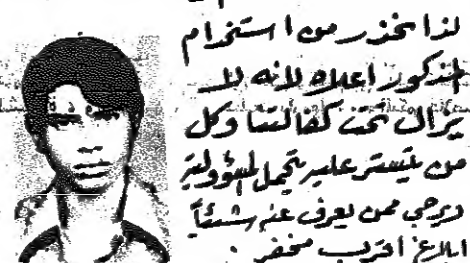 لذا نحذر من استخدام
المذكور اعلاه لانه لا
يزال تحت كفالتنا وكل
من يتستر عليه يتحمل المسؤولية
ويرجى ممن يعرف عنه شيئاً
ابلاغ اقرب مخفر .